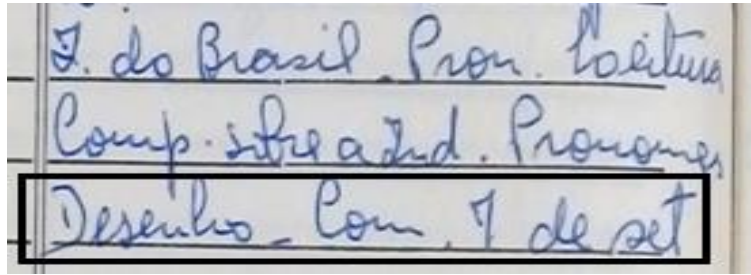 I. do Brasil. Pron. Leitura
Comp. sobre a Ind. Pronomes
Desenho - Com. 7 de set